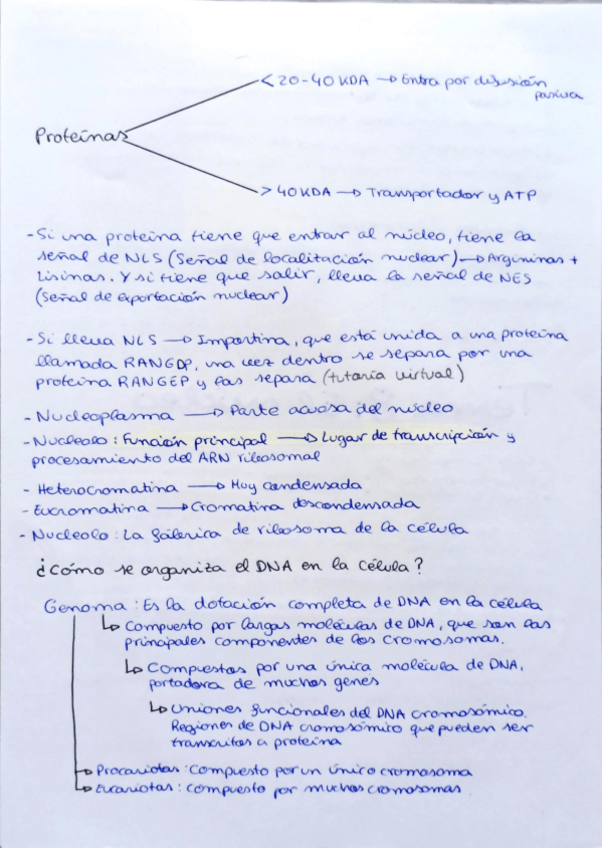 < 20-40 KDA → Entra por difusión
pasiva
Proteínas
> 40 KDA → Transportador y ATP
- Si una proteína tiene que entrar al núcleo, tiene la
señal de NLS (Señal de localitzación nuclear) → Argininas +
Lisinas. Y si tiene que salir, lleva la señal de NES
(Señal de exportación nuclear)
- Si lleva NLS → Importina, que está unida a una proteína
llamada RANGDP, una vez dentro se separa por una
proteína RANGEP y las separa (tutoría virtual)
- Nucleoplasma → Parte acuosa del núcleo
- Nucleolo : Función principal → Lugar de transcripción y
procesamiento del ARN ribosomal
- Heterocromatina → Muy condensada
- Eucromatina → Cromatina descondensada
- Nucleolo : La fábrica de ribosoma de la célula
¿Cómo se organiza el DNA en la célula?
Genoma : Es la dotación completa de DNA en la célula
↳ Compuesto por largas moléculas de DNA, que son las
principales componentes de los cromosomas.
↳ Compuestos por una única molécula de DNA,
portadora de muchos genes
↳ Uniones funcionales del DNA cromosómico.
Regiones de DNA cromosómico que pueden ser
transcritos a proteína
→ Procariotas : Compuesto por un único cromosoma
→ Eucariotas : compuesto por muchos cromosomas.